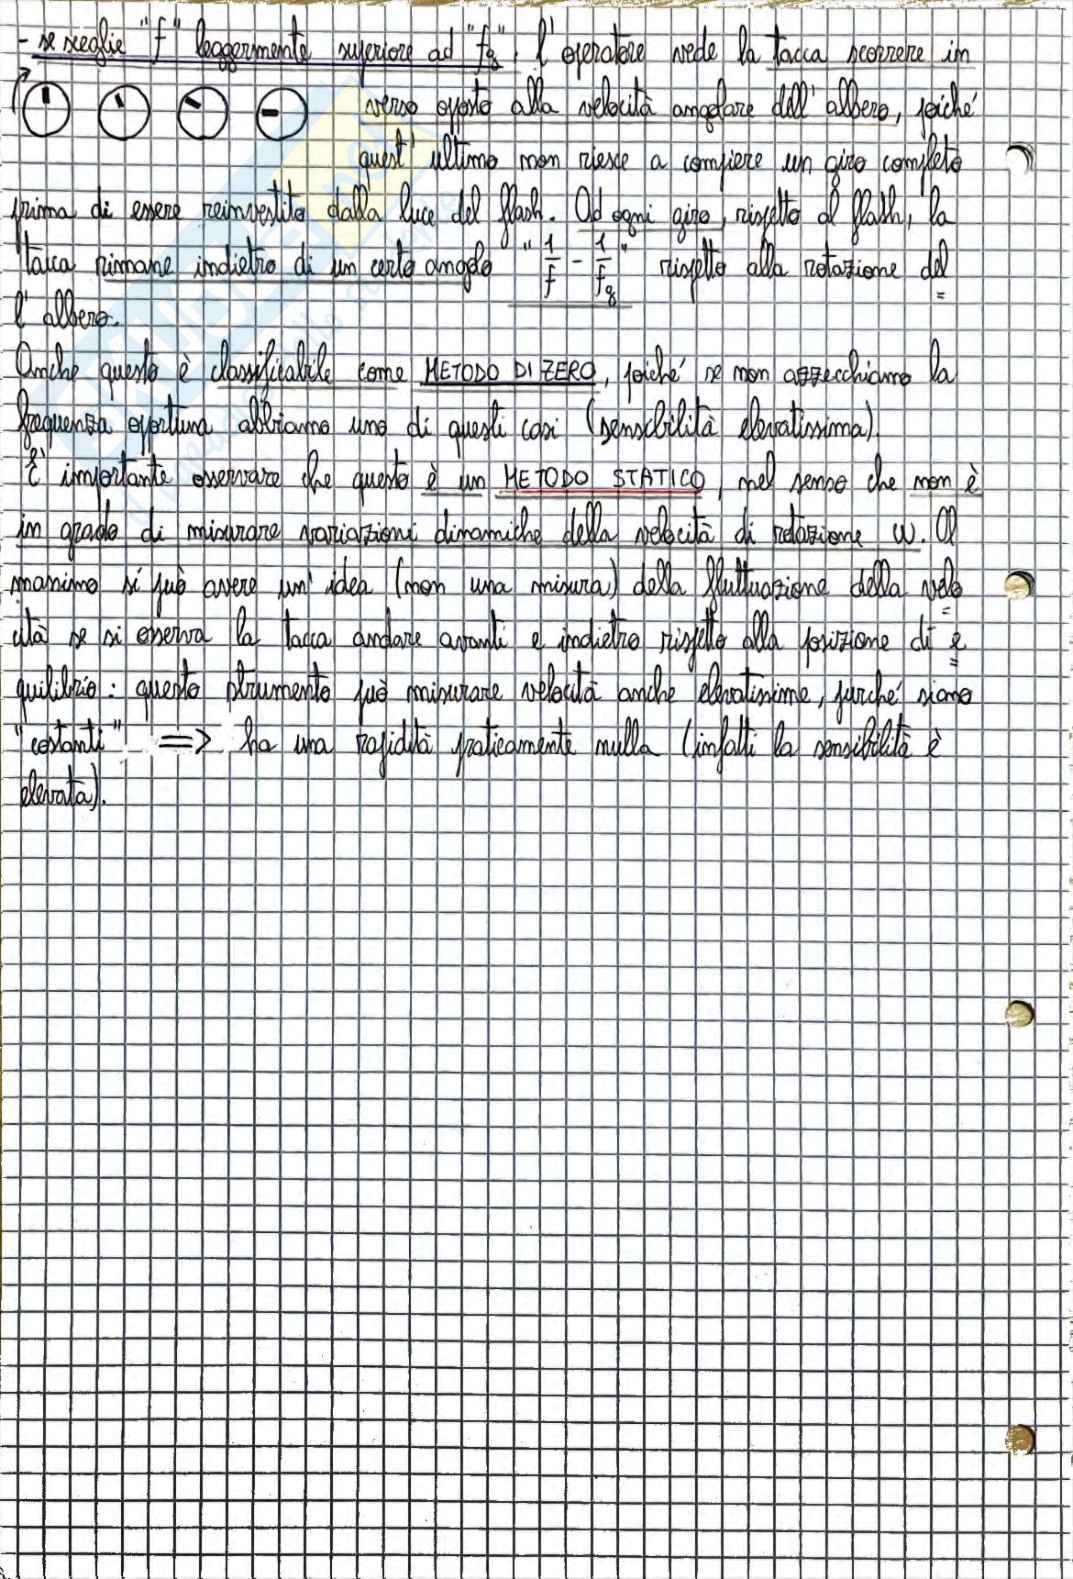 - se sceglie "f" leggermente superiore ad "fg", l'operatore vede la tacca scorrere in
verso opposto alla velocità angolare dell'albero, poiché
quest'ultimo non riesce a compiere un giro completo
prima di essere reinvestito dalla luce del flash. Ad ogni giro, rispetto al flash, la
tacca rimane indietro di un certo angolo "1/f - 1/fg" rispetto alla rotazione del
l'albero.
Anche questo è classificabile come METODO DI ZERO, poiché se non azzecchiamo la
frequenza opportuna abbiamo uno di questi casi (sensibilità elevatissima).
E' importante osservare che questo è un METODO STATICO, nel senso che non è
in grado di misurare variazioni dinamiche della velocità di rotazione ω. Al
massimo si può avere un'idea (non una misura) della fluttuazione della velo
cità se si osserva la tacca andare avanti e indietro rispetto alla posizione di e
quilibrio: questo strumento può misurare velocità anche elevatissime, purché siano
"costanti" => ha una rapidità praticamente nulla (infatti la sensibilità è
elevata).